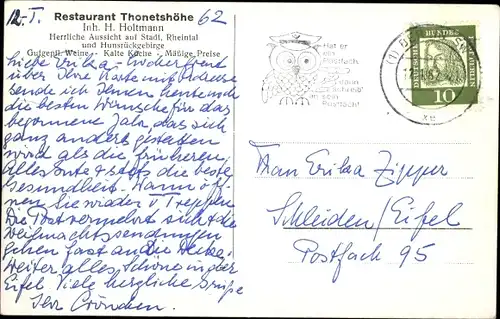 12.I. 62
Restaurant Thonetshöhe
Inh. H. Holtmann
Herrliche Aussicht auf Stadt, Rheintal
und Hunsrückgebirge
Gutgepfl. Weine - Kalte Küche - Mäßige Preise
Liebe Erika - Hocherfreut
über Ihre Karte mit Adresse
sende ich Ihnen heute noch
die besten Wünsche für das
begonnene Jahr, das sich
ganz anders gestalten
wird als die früheren
Alles Gute stets die beste
Gesundheit. Wann
nen Sie wieder Treffen
Die Post vermehrt sich die
Weihnachtssendungen
gehen fast an die
Weiter alles Schöne in der
Eifel Viele herzliche Grüße
Ihr
Hat er
ein
Postfach
dann
schreib'
an sein
Postfach!
DEUTSCHE BUNDESPOST
10
Frau Erika Zipper
Schleiden/Eifel
Postfach 95